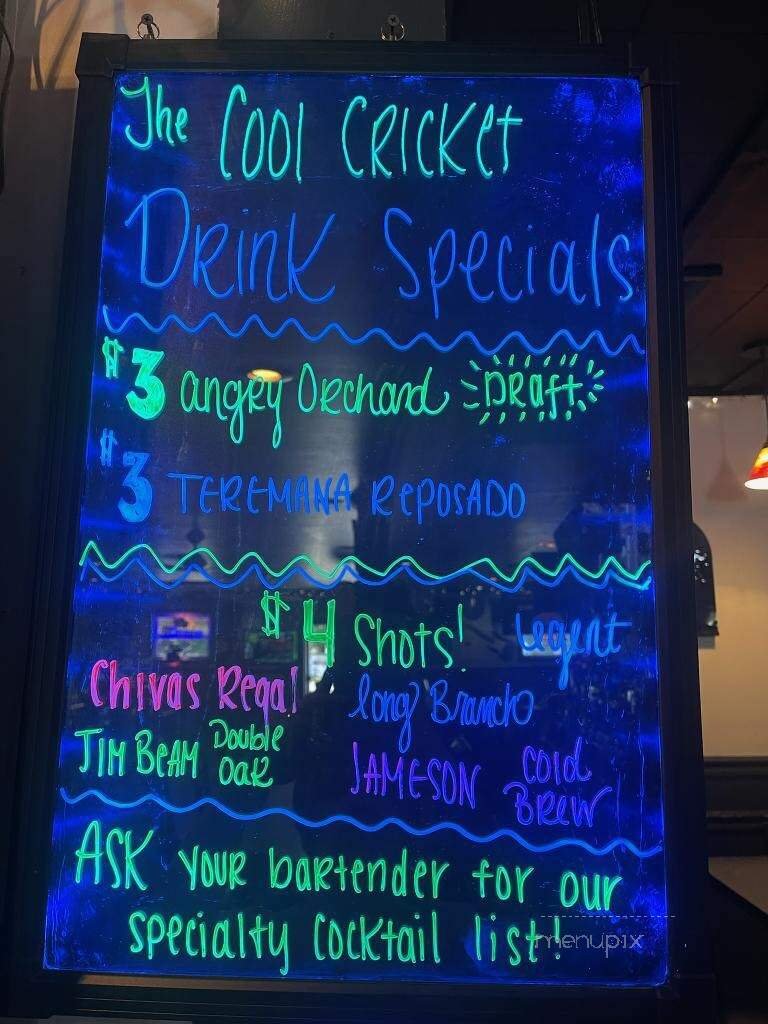 The Cool Cricket
Drink Specials
$3 angry Orchard Draft
$3 TEREMANA REPOSADO
$4 Shots!
Legent
Chivas Regal
long Branch
JIM BEAM Double Oak
JAMESON Cold Brew
ASK your bartender for our
specialty cocktail list!
menupix